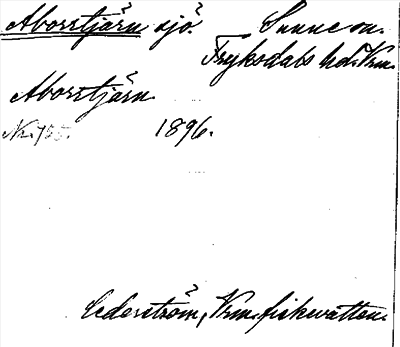 Aborrtjärn sjö. Sunne sn.
Fryksdals hd. Vrm.
Aborrtjärn
1896.
Cederström, Vrm. fiskevatten.